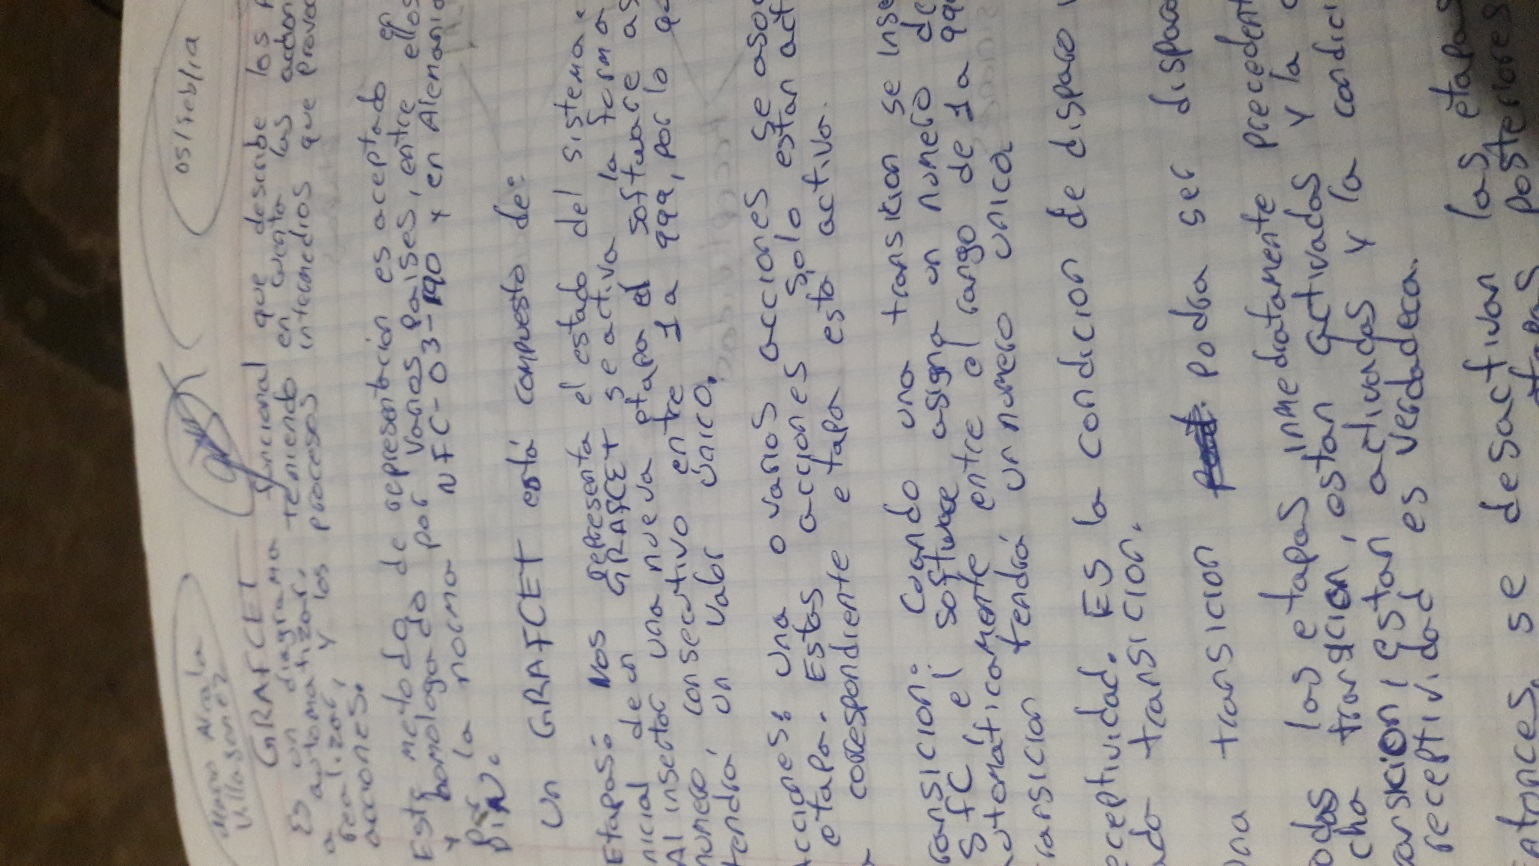 Villagomez
05/Feb/19
GRAFCET
Es un diagrama funcional que describe los
a automatizar, teniendo en cuenta las accion
realizar, y los procesos intermedios que provoc
acciones.
Este metodo de representación es aceptado
y homologado por varios países, entre ellos
por la norma NFC-03-190 y en Alemani
DIN.
Un GRAFCET está compuesto de:
Etapas: Nos representa el estado del sistema.
nicial de un GRAFCET se activa la forma
Al insertar una nueva etapa el software as
numero consecutivo entre 1 a 999, por lo q
tendrá un valor único.
cciones: una o varias acciones se aso
etapa. Estas acciones solo estan act
correspondiente etapa esta activa.
ransicion: Cuando una transicion se inse
SFC, el software asigna un numero de
utomáticamente entre el rango de 1 a 99
ransicion tendrá un numero unica
eceptividad. Es la condicion de disparo
ado transicion.
na transicion podra ser dispara
odas las etapas inmediatamente precedent
cha transicion, estan activadas y la
ansicion estan activadas y la condici
receptividad es verdadeca.
ntonces, se desactivan las etapas
etapas posteriores